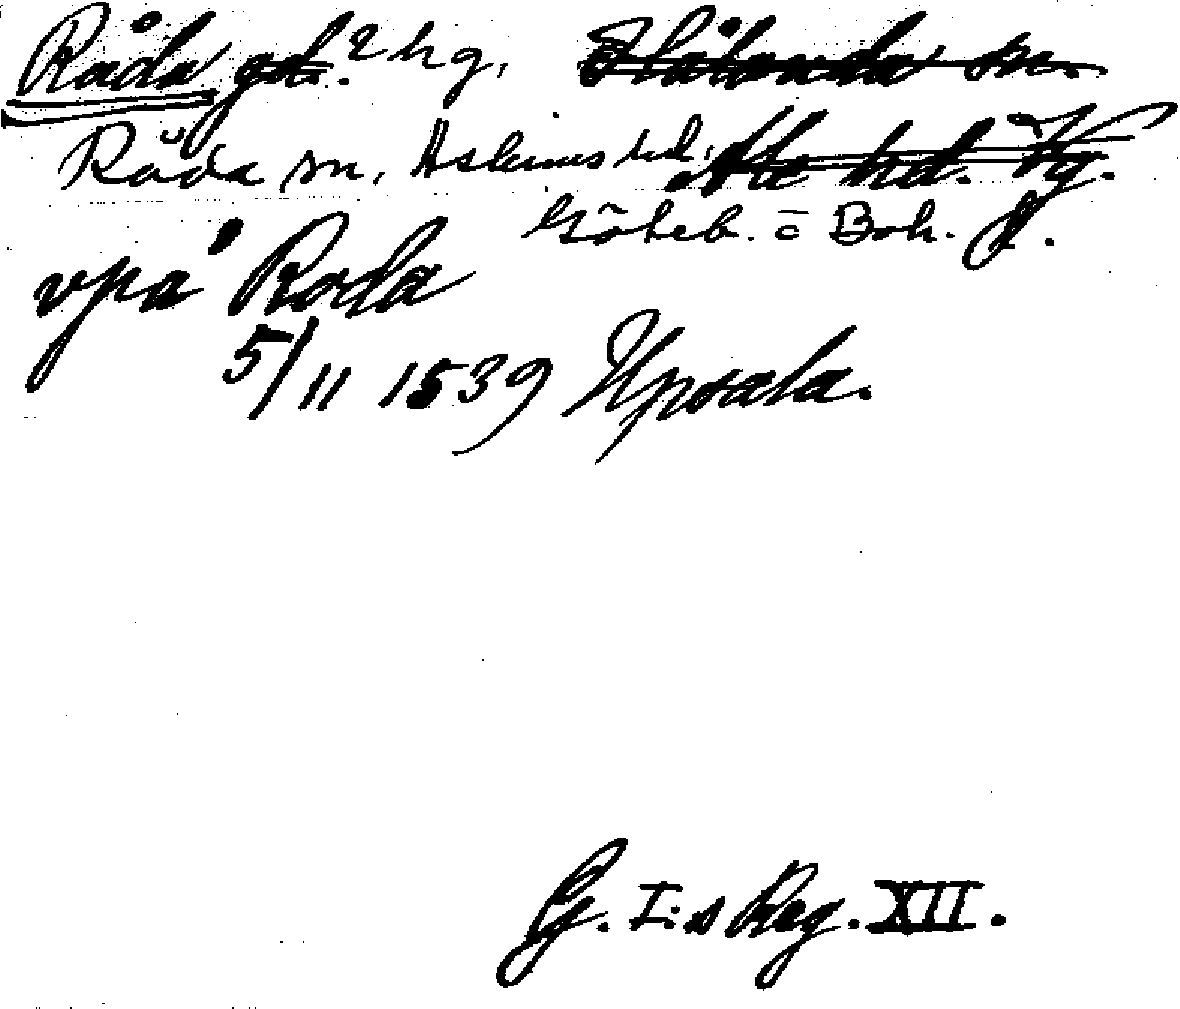 Råda gd. 2 hg, Hålanda sn.
Råda sn, Askims hd, Ale hd. Vg.
Göteb. o Boh. l.
vpå Roda
5/11 1539 Upsala.
G. I:s Reg. XII.